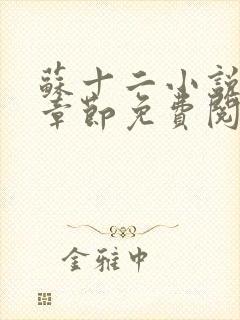 蘇十二小說
章節免費閱
金雅中